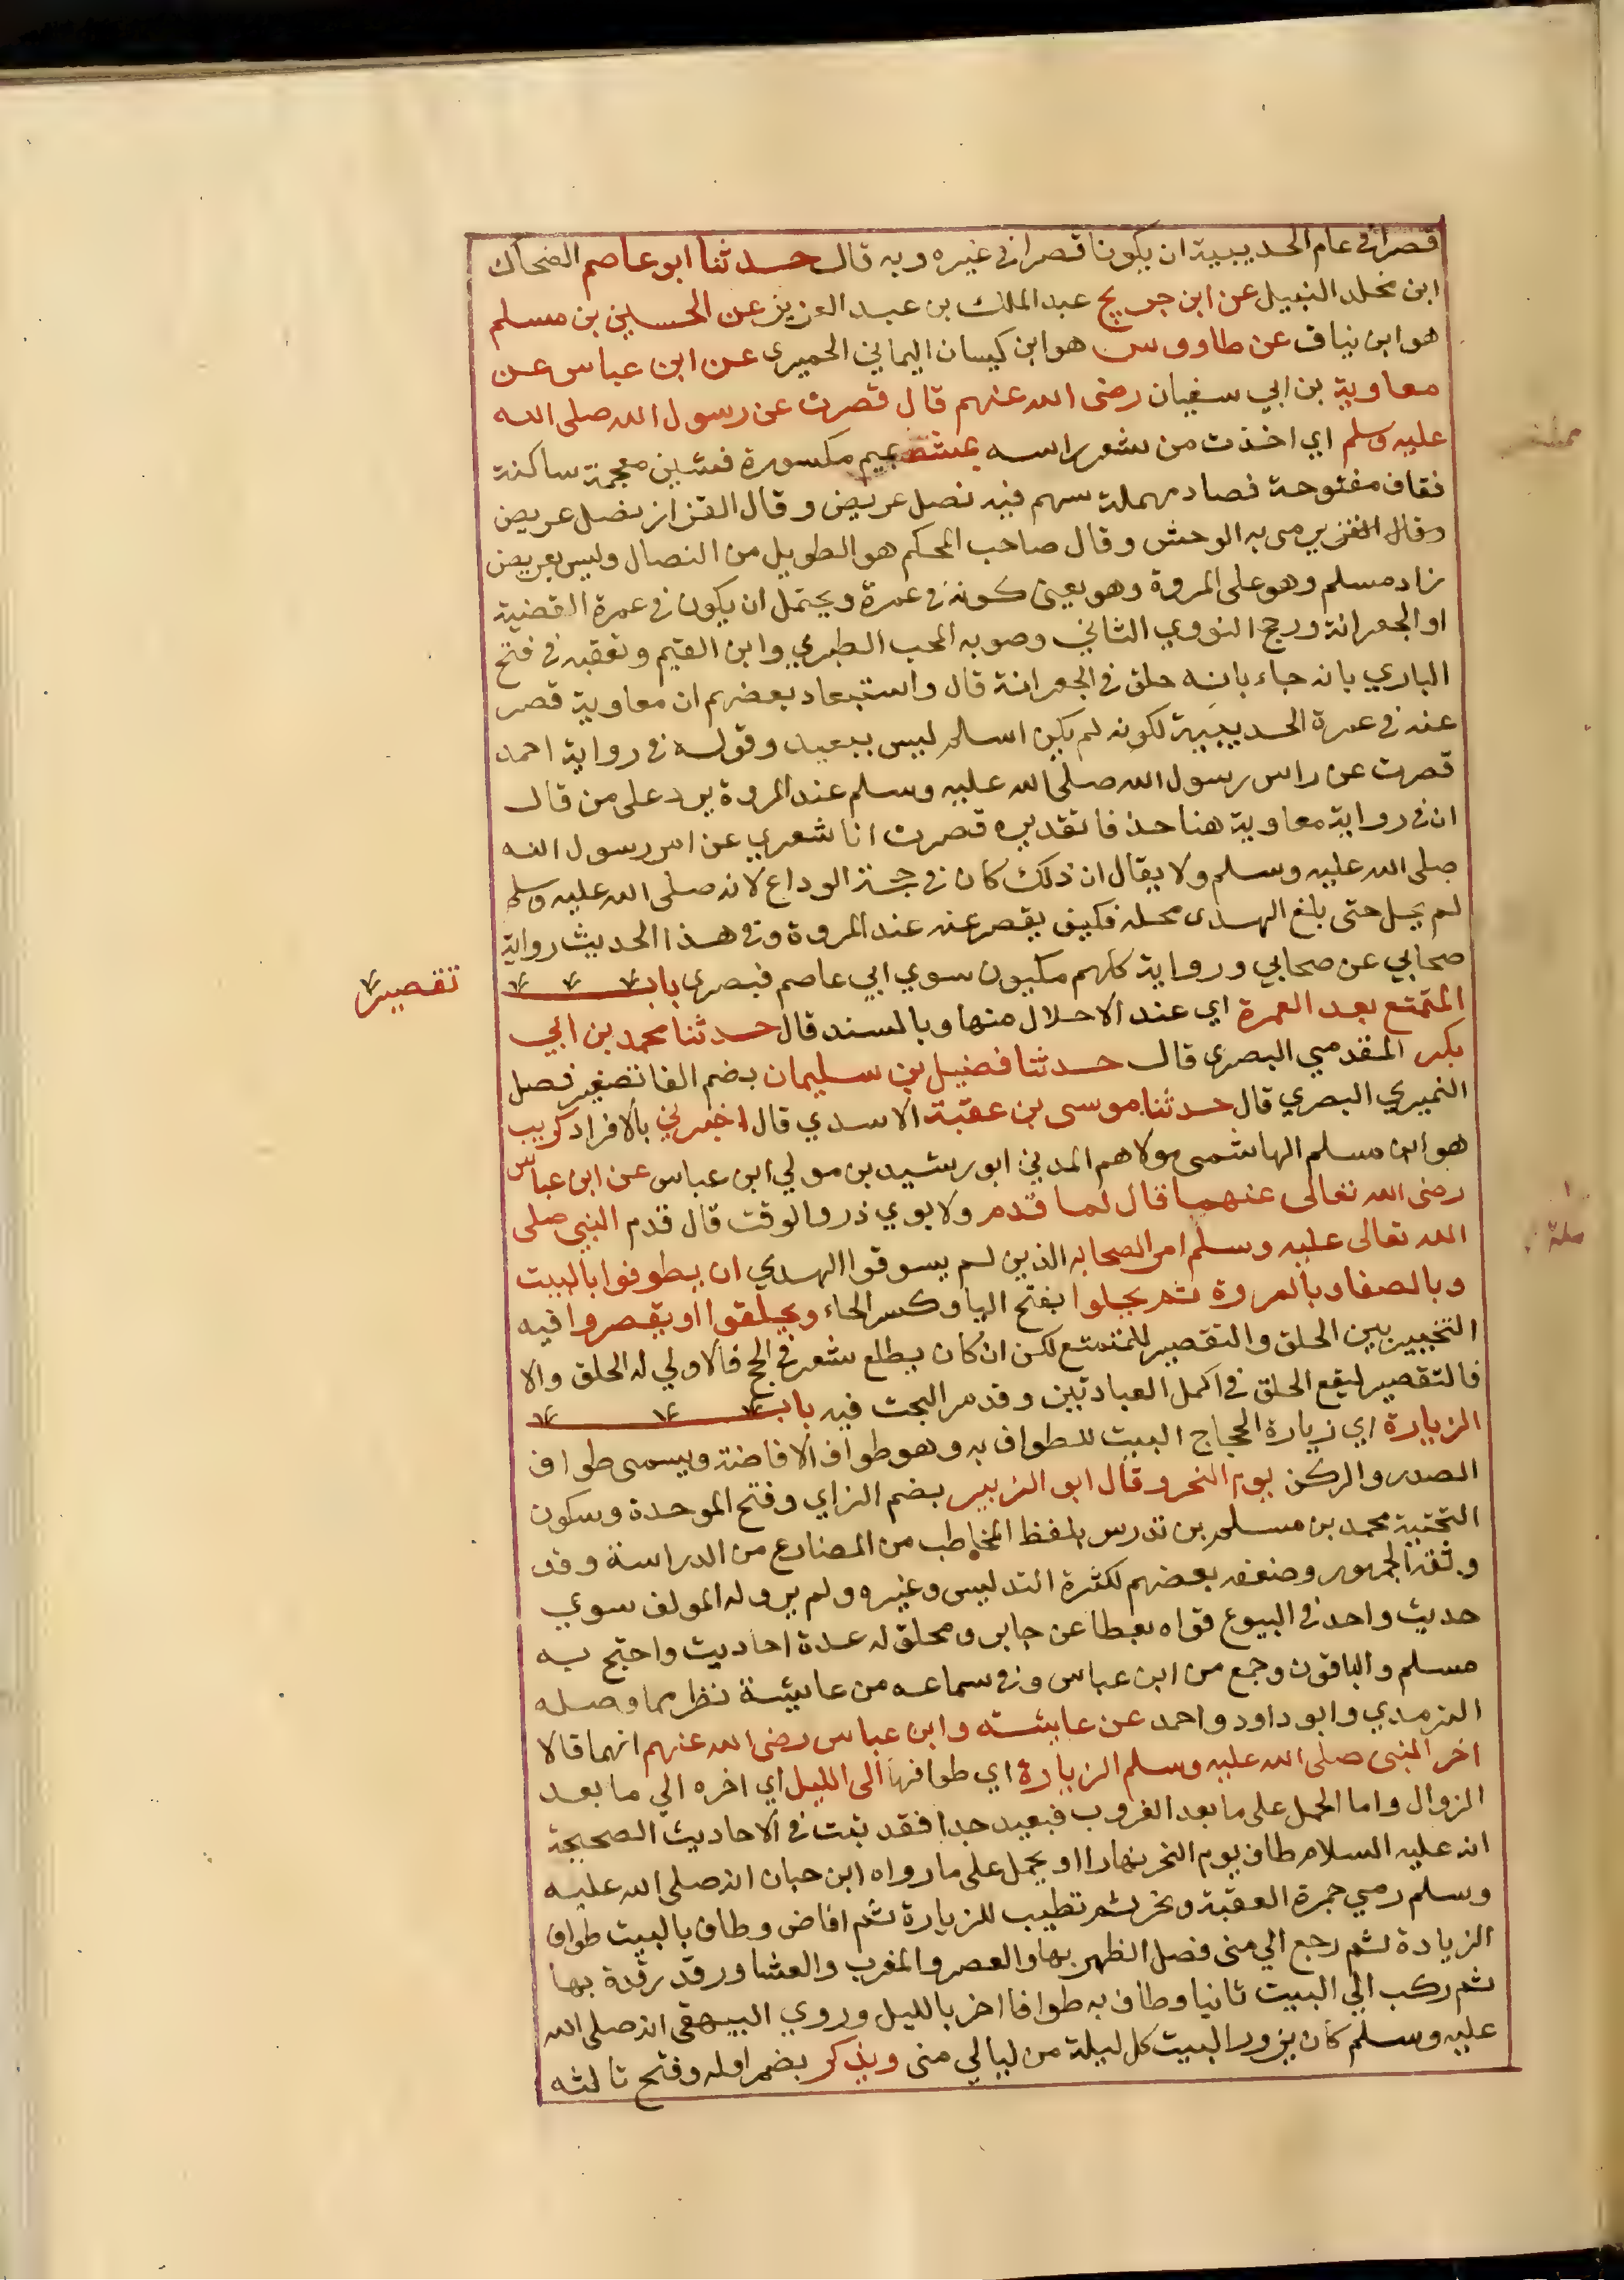 قصرا في عام الحديبية ان يكونا قصرا في غيره وبه قال حدثنا ابو عاصم الضحاك
ابن مخلد النبيل عن ابن جريج عبد الملك بن عبد العزيز عن الحسين بن مسلم
هو ابن نياق عن طاووس هو ابن كيسان اليماني الحميري عن ابن عباس عن
معاوية بن ابي سفيان رضى الله عنهم قال قصرت عن رسول الله صلى الله
عليه وسلم اي اخذت من شعر راسه بمشقص بميم مكسورة فشين معجمة ساكنة
فقاف مفتوحة فصاد مهملة سهم فيه نصل عريض وقال القزاز نصل عريض
وقال يرمى به الوحش وقال صاحب المحكم هو الطويل من النصال وليس بعريض
زاد مسلم وهو على المروة وهو يعين كونه في عمرة ويحتمل ان يكون في عمرة القضية
او الجعرانة ورجح النووي الثاني وصوبه المحب الطبري وابن القيم وتعقبه في فتح
الباري بانه جاء بانه حلق في الجعرانة قال واستبعاد بعضهم ان معاوية قصر
عنه في عمرة الحديبية لكونه لم يكن اسلم ليس ببعيد وقوله في رواية احمد
قصرت عن راس رسول الله صلى الله عليه وسلم عند المروة يرد على من قال
ان في رواية معاوية هنا حذفا تقديره قصرت انا شعري عن امر رسول الله
صلى الله عليه وسلم ولا يقال ان ذلك كان في حجة الوداع لانه صلى الله عليه وسلم
لم يحل حتى بلغ الهدى محله فكيف يقصر عنه عند المروة وفي هذا الحديث رواية
صحابي عن صحابي ورواية كلهم مكيون سوي ابي عاصم فبصرى باب
تقصير
المتمتع بعد العمرة اي عند الاحلال منها وبالسند قال حدثنا محمد بن ابي
بكر المقدمي البصرى قال حدثنا فضيل بن سليمان بضم الفا تصغير فصل
النميري البصري قال حدثنا موسى بن عقبة الاسدي قال اخبرني بالافراد كريب
هو ابن مسلم الهاشمى مولاهم المدني ابو رشيد بن مولي ابن عباس عن ابن عباس
رضى الله تعالى عنهما قال لما قدم ولابوي ذر والوقت قال قدم النبي صلى
الله تعالى عليه وسلم امر الصحابه الذين لم يسوقوا الهدي ان يطوفوا بالبيت
وبالصفا وبالمروة ثم يحلوا بفتح اليا وكسر الحاء ويحلقوا او يقصروا فيه
التخيير بين الحلق والتقصير للمتمتع لكن ان كان يطلع شعره في الحج فالاولي له الحلق والا
فالتقصير ليقع الحلق في اكمل العبادتين وقد مر البحث فيه باب
الزيارة اي زيارة الحجاج البيت للطواف به وهو طواف الافاضة ويسمى طواف
الصدر والركن يوم النحر وقال ابو الزبير بضم الزاي وفتح الموحدة وسكون
التحتية محمد بن مسلم بن تدرس بلفظ المخاطب من المضارع من الدراسة وقد
وثقه الجمهور وضعفه بعضهم لكثرة التدليس وغيره ولم يرو له المولف سوي
حديث واحد في البيوع قواه بعطا عن جابر ومحلق له عدة احاديث واحتج به
مسلم والباقون وجمع من ابن عباس وفي سماعه من عايشة نظر مما وصله
الترمدي وابو داود واحمد عن عايشة وابن عباس رضى الله عنهم انهما قالا
اخر النبى صلى الله عليه وسلم الزيارة اي طوافها الى الليل اي اخره الي ما بعد
الزوال واما الحمل على ما بعد الغروب فبعيد جدا فقد ثبت في الاحاديث الصحيحة
انه عليه السلام طاف يوم النحر نهارا او يحمل على ما رواه ابن حبان انه صلى الله عليه
وسلم رمي جمرة العقبة ونحر ثم تطيب للزيارة ثم افاض وطاف بالبيت طواف
الزيادة ثم رجع الي منى فصل الظهر بها والعصر والمغرب والعشا ورقد رقدة بها
ثم ركب الي البيت ثانيا وطاف به طوافا اخر بالليل وروي البيهقى انه صلى الله
عليه وسلم كان يزور البيت كل ليلة من ليالي منى ويذكر بضم اوله وفتح ثالثه